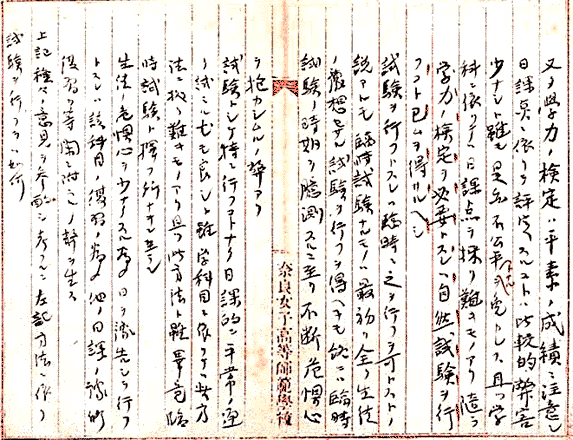 又タ學力ノ検定ハ平素ノ成績ニ注意シ
日課点ニ依リテ評定スルコトハ比較的弊害
少ナシト雖モ是亦不公平ヲ免レス且ツ学
科ニ依リテハ日課点ヲ採リ難キモノアリ従テ
学力ノ検定ヲ必要トスレハ自然試験ヲ行
フコト已ムヲ得サルヘシ
試験ヲ行フトスレハ臨時ニ之ヲ行フヲ可トストノ
説アルモ臨時試験ナルモノハ最初ヨリ全ク生徒
ノ豫想セサル試験ヲ行フヲ得ヘキモ次ニハ臨時
試験ノ時期ヲ臆測スルニ至リ不断危惧心
ヲ抱カシムルノ弊アリ
奈良女子高等師範學校
試験トシテ特ニ行フコトナク日課的ニ平常ノ
ノ試ミルモ良シト雖学科目ニ依リテハ此方
法ニ拠リ難キモノアリ且ツ此方法ト雖畢竟臨
時試験ト擇フ所ナカルヘシ
生徒ノ危惧心ヲ少ナカラシムル為メ日ヲ豫告シテ行フ
トスレハ該科目復習ノ為メ他ノ日課ノ豫修
復習ヲ等閑ニ附スルノ弊ヲ生ス
上記種々ノ意見ヲ参酌シ考フルニ左記方法ニ依リ
試験ヲ行フテハ如何